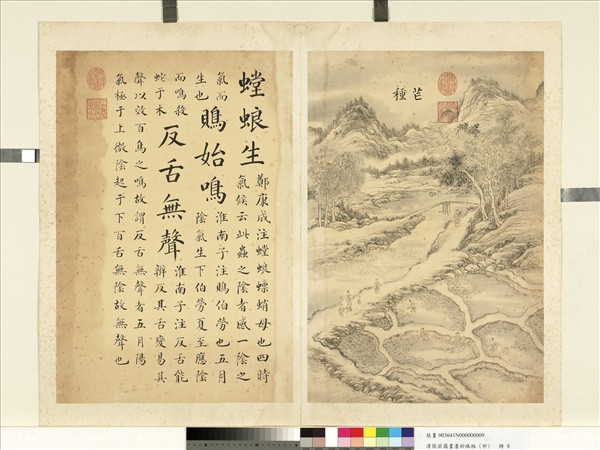 芒種
螳螂生
鄭康成注螳螂螵蛸母也四時
氣候云此蟲之陰者感一陰之
氣而
生也
鵙始鳴
淮南子注鵙伯勞也五月
陰氣生下伯勞夏至應陰
而鳴殺
蛇于木
反舌無聲
淮南子注反舌能
辯反其舌變易其
聲以效百鳥之鳴故謂反舌無聲者五月陽
氣極于上微陰起于下百舌無陰故無聲也
故畫003641N000000009
清張若靄畫墨妙珠林（卯） 冊 9